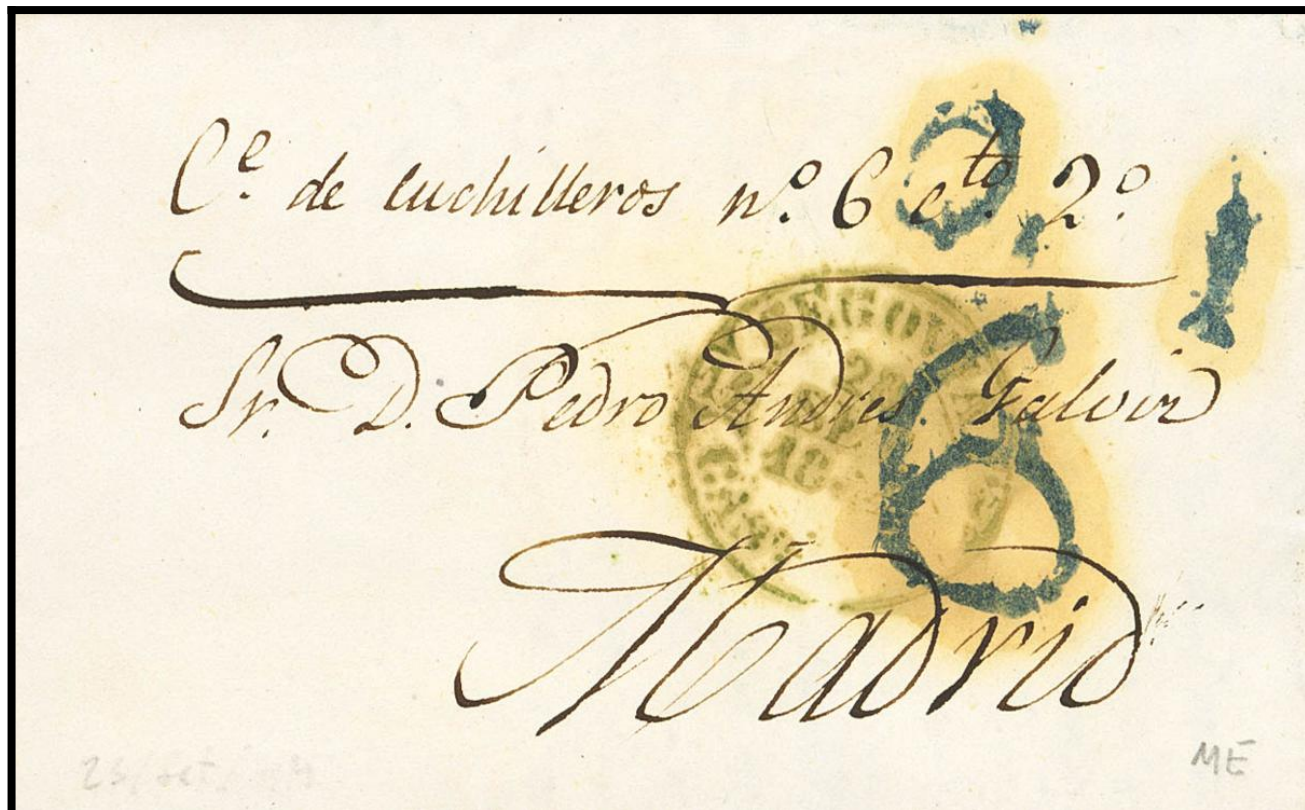 C.e de cuchilleros n.o 6 c.to 2.o
Sr. D. Pedro Andres Galvin
Madrid
6
ME